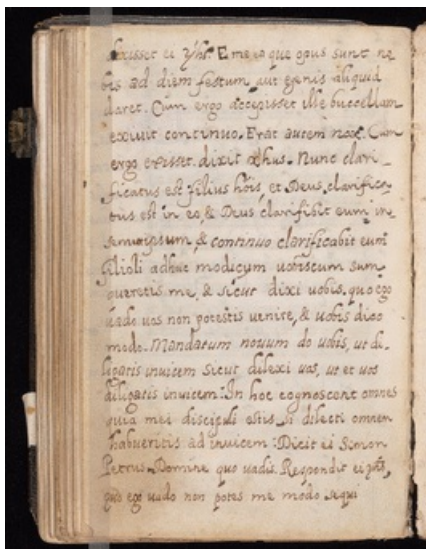 dixisset ei Jhs. Eme ea que opus sunt no
bis ad diem festum aut egenis aliquid
daret. Cum ergo accepisset ille buccellam
exiuit continuo. Erat autem nox. Cum
ergo exisset. dixit Jhus. Nunc clari
ficatus est filius hois, et Deus clarifica
tus est in eo, & Deus clarifibit eum in
semetipsum, & continuo clarificabit eum
filioli adhuc modicum uobiscum sum
queretis me, & sicut dixi uobis, quo ego
uado uos non potestis uenire, & uobis dico
modo. Mandatum nouum do uobis, ut di
ligatis inuicem sicut dilexi uos, ut et uos
diligatis inuicem: In hoc cognoscent omnes
quia mei discipuli estis, si dilecti omnem
habueritis ad inuicem: Dicit ei Simon
Petrus. Domine quo uadis. Respondit ei
quo ego uado non potes me modo sequi